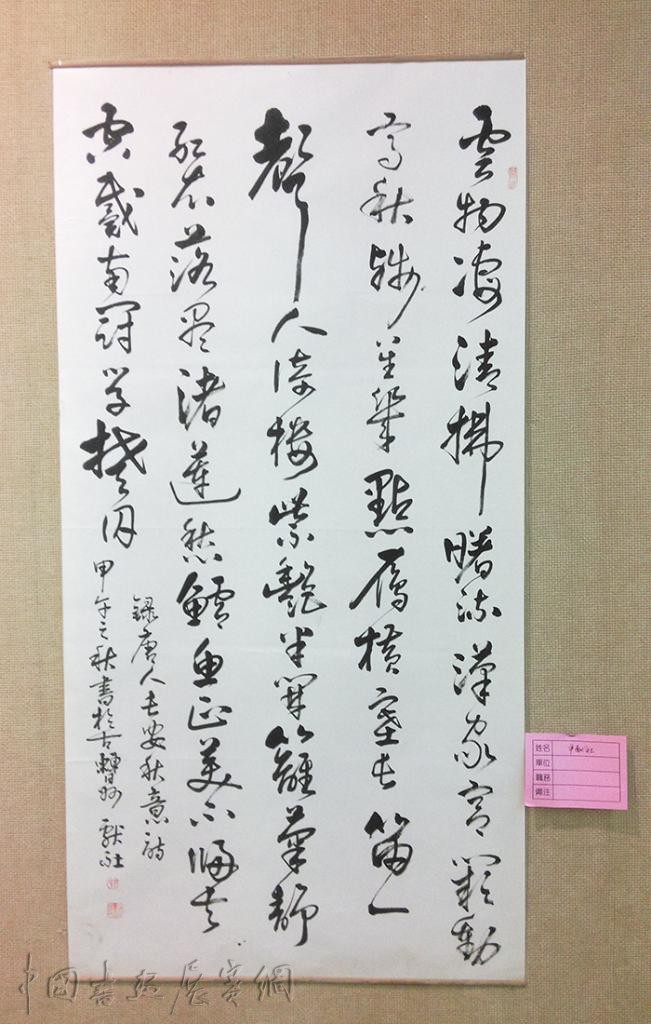 雲物淒清拂曙流漢家宮闕動
高秋殘星幾點雁橫塞長笛一
聲人倚樓紫艷半開籬菊靜
紅衣落盡渚蓮愁鱸魚正美不歸去
空戴南冠學楚囚
錄唐人長安秋意詩
甲午之秋書於古州 獻社
姓名 申献社
單位
職務
備注
中國書法展賽網